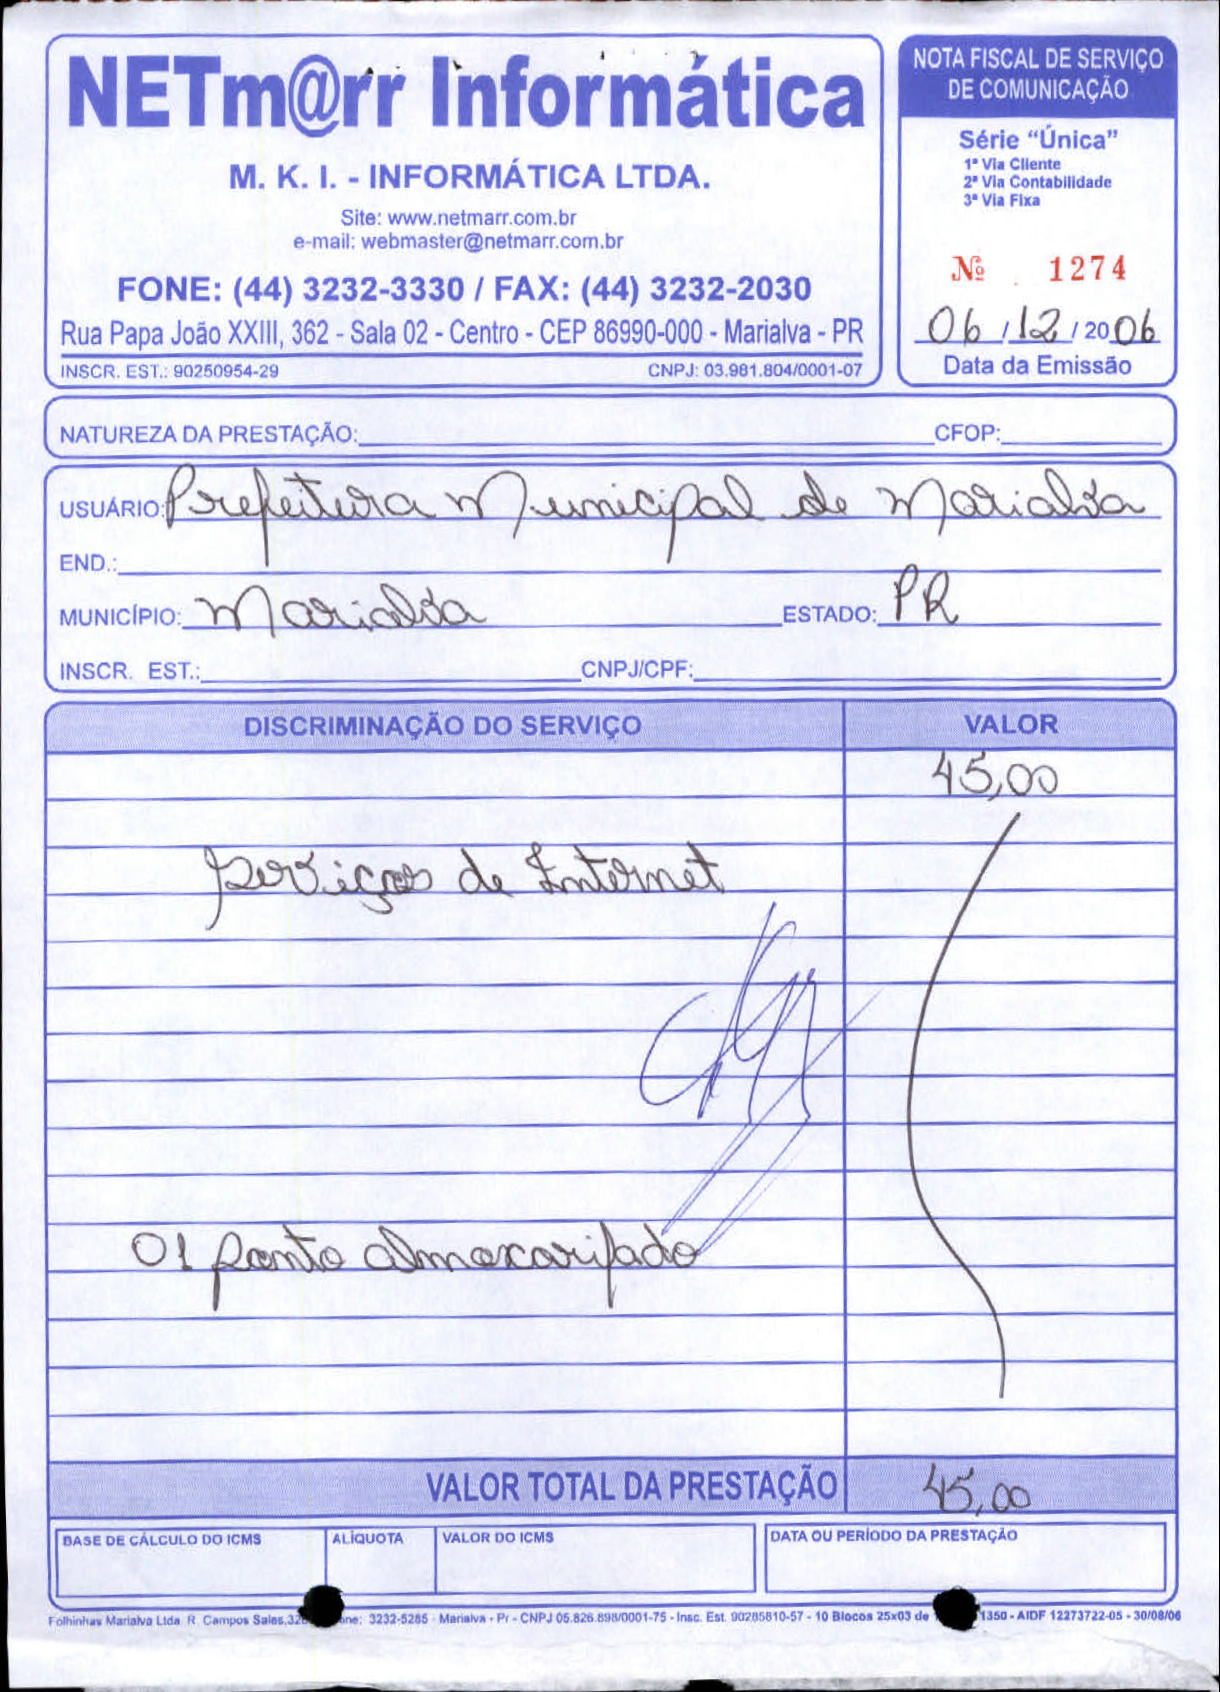 NETm@rr Informática
M. K. I. - INFORMÁTICA LTDA.
Site: www.netmarr.com.br
e-mail: webmaster@netmarr.com.br
FONE: (44) 3232-3330 / FAX: (44) 3232-2030
Rua Papa João XXIII, 362 - Sala 02 - Centro - CEP 86990-000 - Marialva - PR
INSCR. EST.: 90250954-29 CNPJ: 03.981.804/0001-07
NOTA FISCAL DE SERVIÇO
DE COMUNICAÇÃO
Série "Única"
1ª Via Cliente
2ª Via Contabilidade
3ª Via Fixa
Nº 1274
06 / 12 / 2006
Data da Emissão
NATUREZA DA PRESTAÇÃO: CFOP:
USUÁRIO: Prefeitura Municipal de Marialva
END.:
MUNICÍPIO: Marialva ESTADO: PR
INSCR. EST.: CNPJ/CPF:
DISCRIMINAÇÃO DO SERVIÇO VALOR
45,00
Serviços de Internet
01 ponto almoxarifado
VALOR TOTAL DA PRESTAÇÃO 45,00
BASE DE CÁLCULO DO ICMS ALÍQUOTA VALOR DO ICMS DATA OU PERÍODO DA PRESTAÇÃO
Folhinhas Marialva Ltda R. Campos Sales, 3232-5285 - Marialva - Pr - CNPJ 05.826.898/0001-75 - Insc. Est. 90285810-57 - 10 Blocos 25x03 de 1350 - AIDF 12273722-05 - 30/08/06